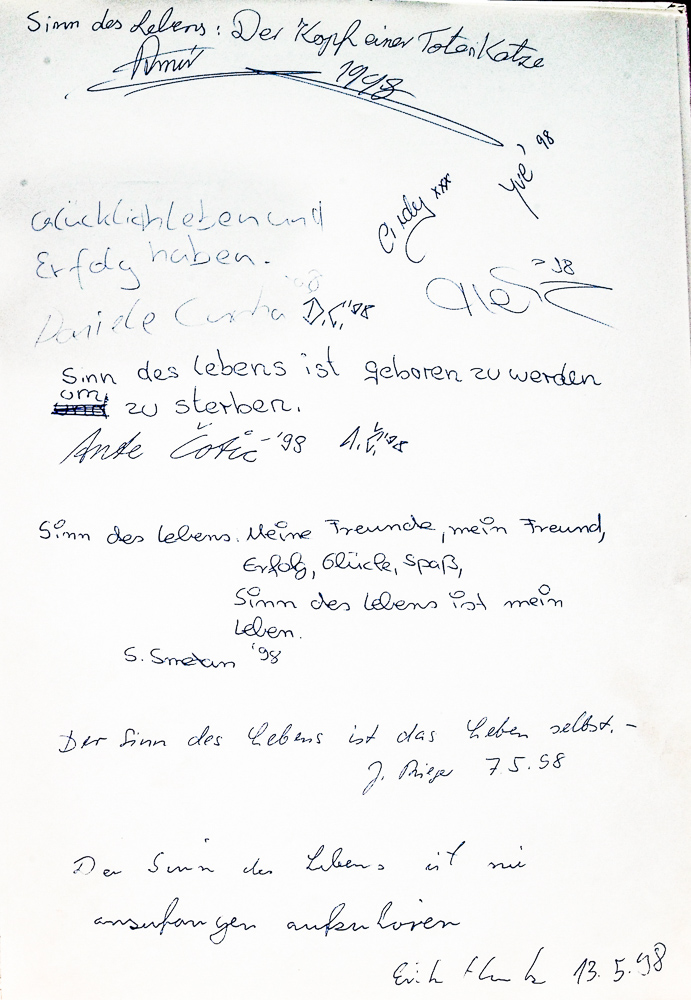 Sinn des Lebens: Der Kopf einer Toten Katze
Amir 1998
Yve '98
Cindy xxx
Glücklich leben und
Erfolg haben.
'98
Daniele Cunha D.C. '98
Sinn des lebens ist geboren zu werden
um zu sterben.
Ante Čotić '98 A.Č. '98
Sinn des Lebens. Meine Freunde, mein Freund,
Erfolg, Glück, Spaß,
Sinn des Lebens ist mein
Leben.
S. Smetan '98
Der Sinn des Lebens ist das Leben selbst. –
J. 7.5.98
Der Sinn des Lebens ist nie
anzufangen aufzuhören
Erik 13.5.98